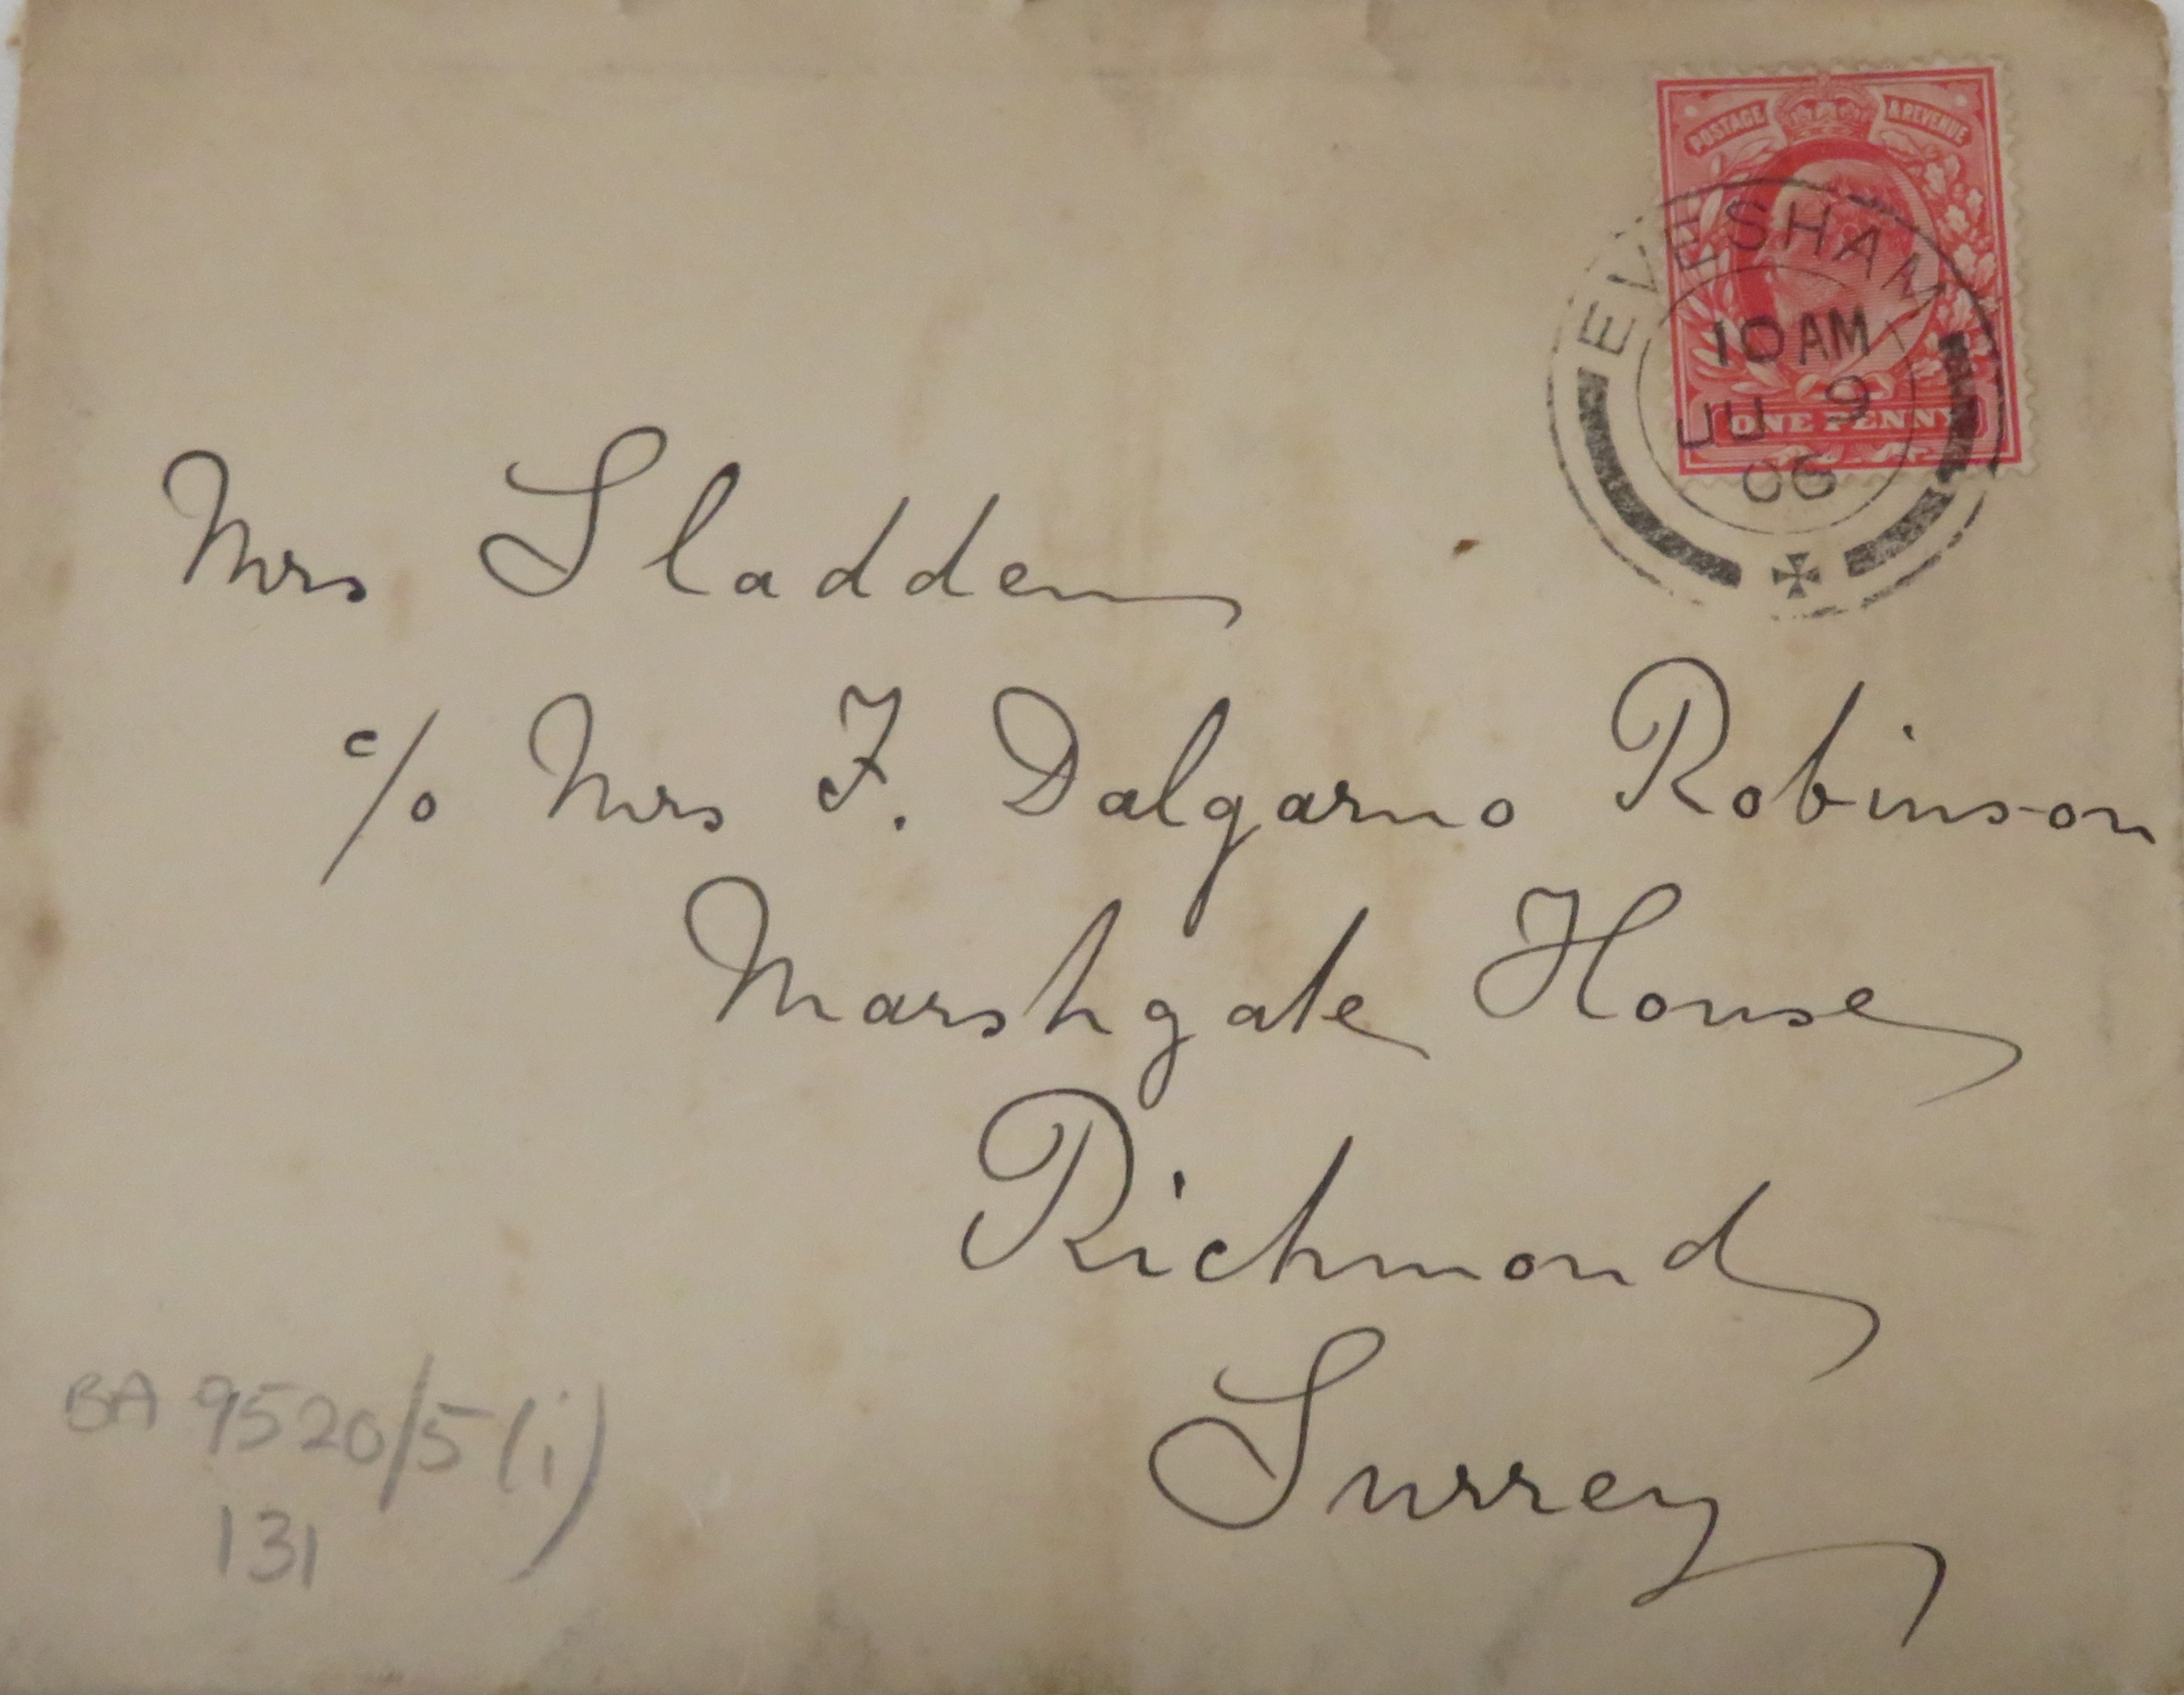 POSTAGE & REVENUE
EVESHAM
10 AM
JU 9
06
ONE PENNY
Mrs Sladden
c/o Mrs F. Dalgarno Robinson
Marshgate House
Richmond
Surrey
BA 9520/5(i)
131